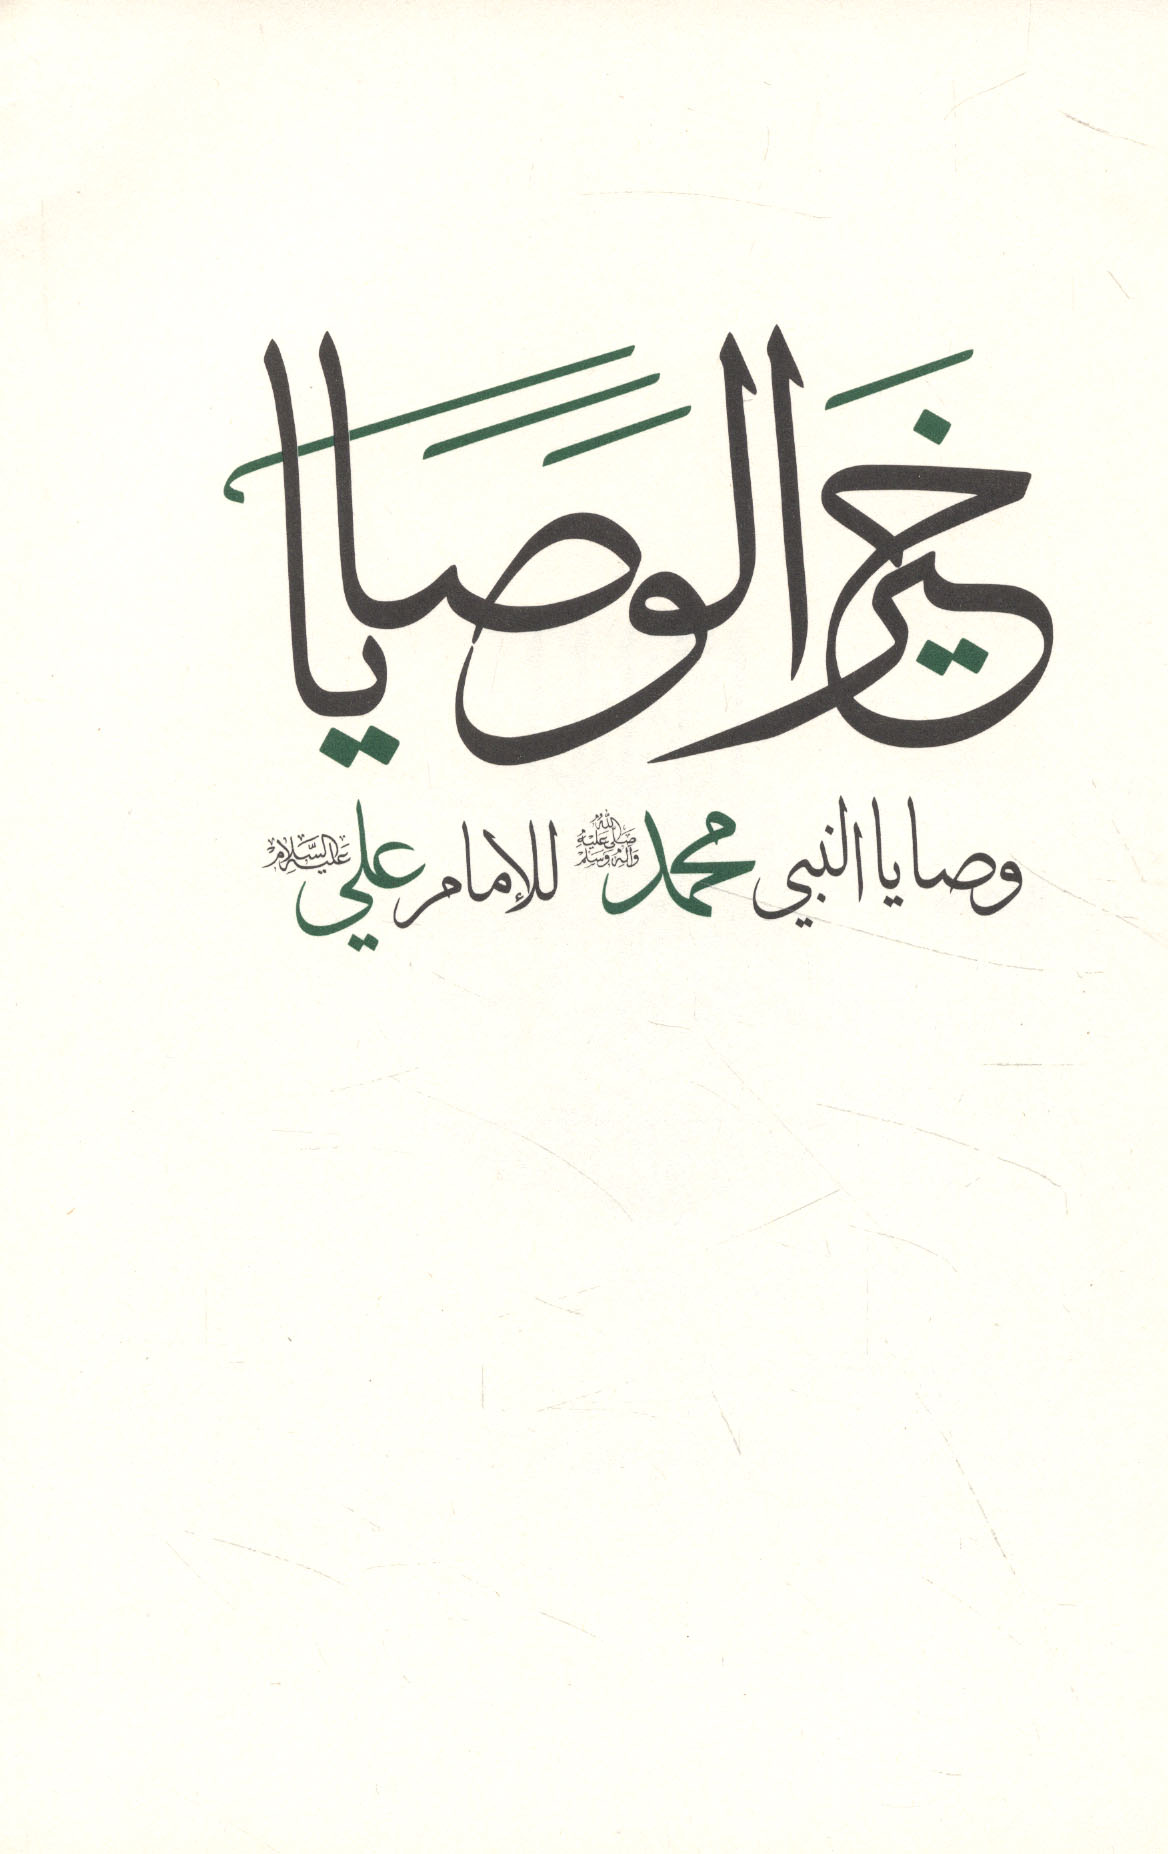 خير الوصايا
وصايا النبي محمد صلى الله عليه وآله وسلم للإمام علي عليه السلام